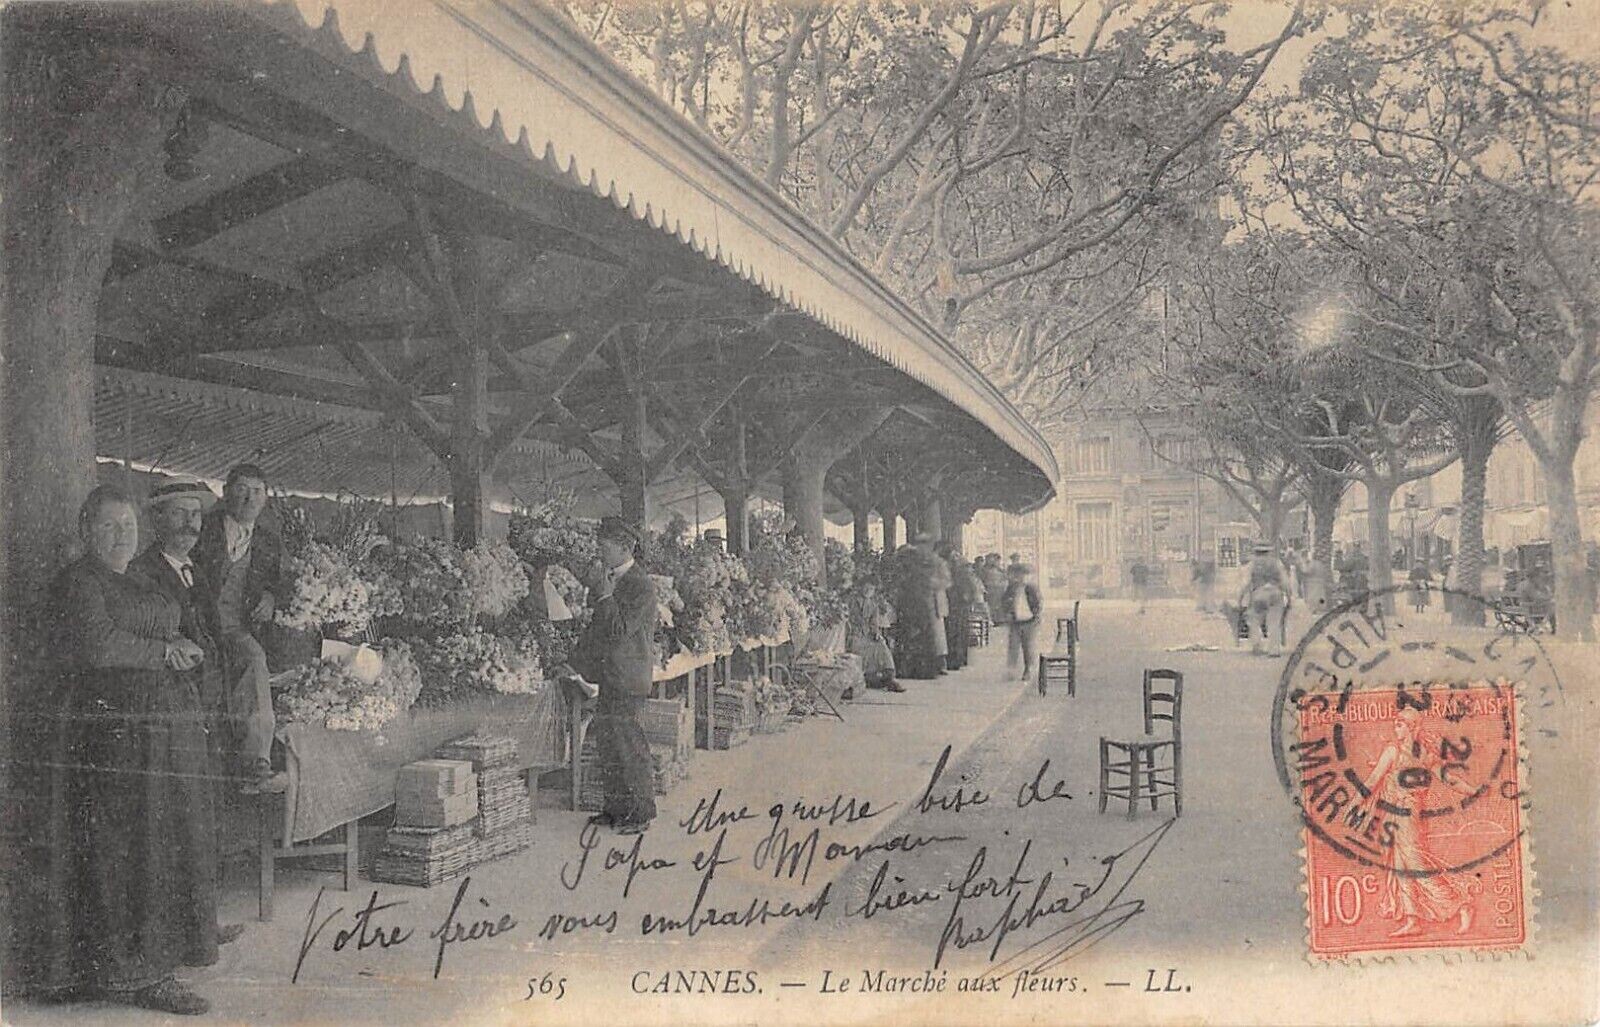 Une grosse bise de
Papa et Maman
Votre frère vous embrassent bien fort
Raphaël
565 CANNES. — Le Marché aux fleurs. — LL.
RÉPUBLIQUE FRANÇAISE
10c
POSTES
CANNES
ALPES MARMES